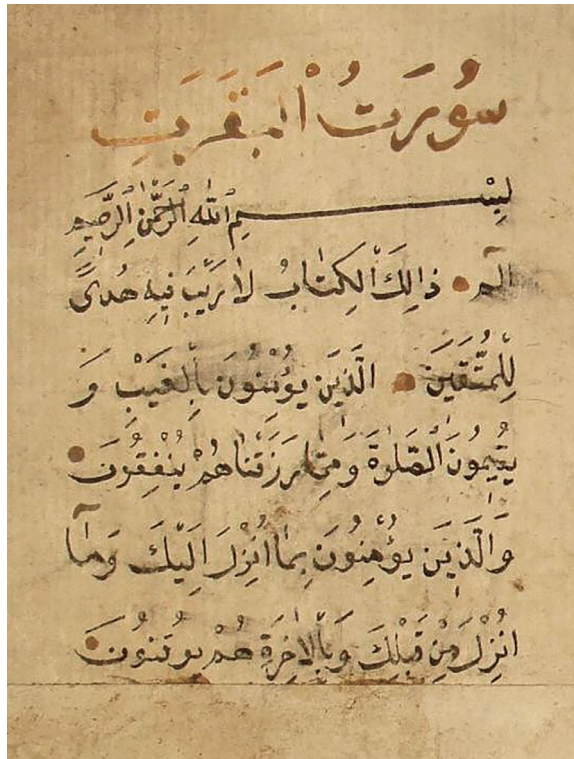 سُورَتُ الْبَقَرَتِ
بِسْمِ اللّٰهِ الرَّحْمٰنِ الرَّحِيمِ
الٓم ذَالِكَ الْكِتَابُ لَا رَيْبَ فِيهِ هُدًى
لِلْمُتَّقِينَ الَّذِينَ يُؤْمِنُونَ بِالْغَيْبِ وَ
يُقِيمُونَ الصَّلٰوةَ وَمِمَّا رَزَقْنَاهُمْ يُنْفِقُونَ
وَالَّذِينَ يُؤْمِنُونَ بِمَا اُنْزِلَ اِلَيْكَ وَمَآ
اُنْزِلَ مِنْ قَبْلِكَ وَبِالْاٰخِرَةِ هُمْ يُوقِنُونَ